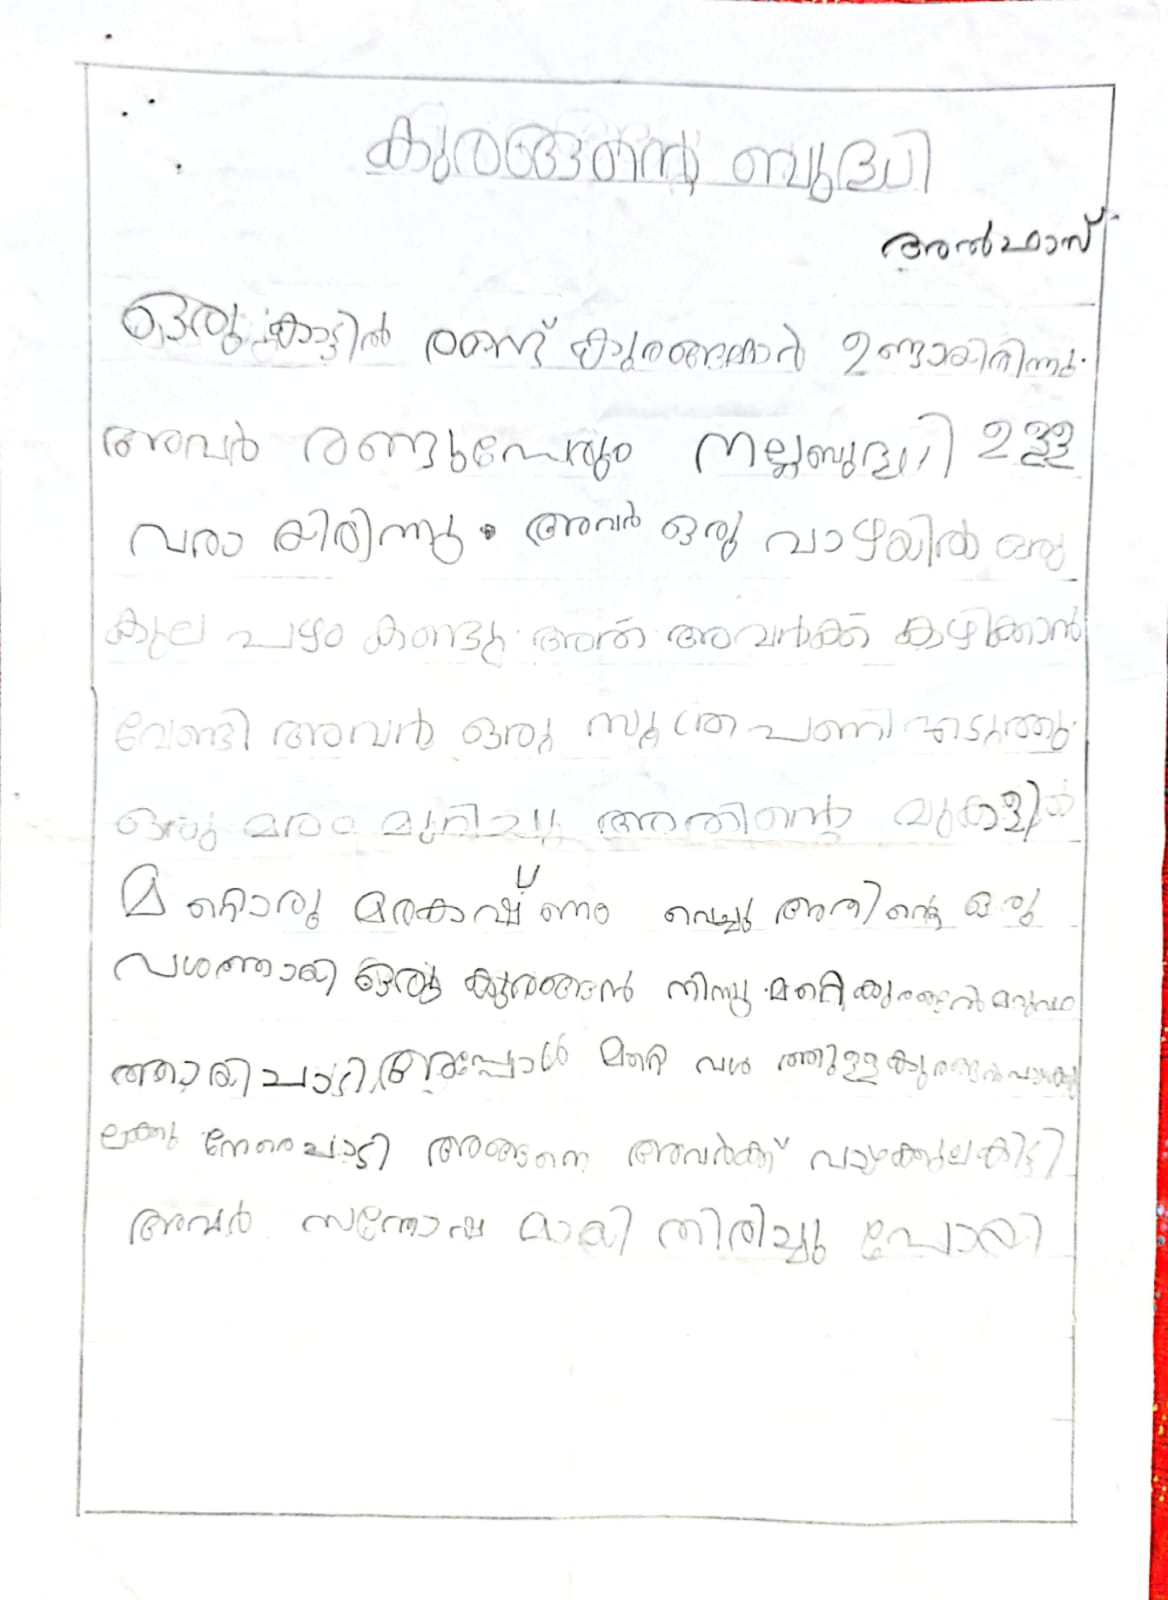 കുരങ്ങന്റെ ബുദ്ധി
അൽഫാസ്
ഒരു കാട്ടിൽ രണ്ട് കുരങ്ങന്മാർ ഉണ്ടായിരിന്നു.
അവർ രണ്ടുപേരും നല്ലബുദ്ധി ഉള്ള
വരാ യിരിന്നു. അവർ ഒരു വാഴയിൽ ഒരു
കുല പഴം കണ്ടു. അത് അവർക്ക് കഴിക്കാൻ
വേണ്ടി അവർ ഒരു സൂത്ര പണി എടുത്തു.
ഒരു മരം മുറിച്ചു അതിന്റെ മുകളിൽ
മറ്റൊരു മരകഷ്ണം വെച്ചു അതിന്റെ ഒരു
വശത്തായി ഒരു കുരങ്ങൻ നിന്നു. മറ്റെ കുരങ്ങൻ മറുവശ
ത്തായി ചാടി. അപ്പോൾ മറ്റെ വശ ത്തുള്ള കുരങ്ങൻ വാഴക്കു
ലക്കു നേരെ ചാടി അങ്ങനെ അവർക്ക് വാഴക്കുല കിട്ടി
അവർ സന്തോഷ മായി തിരിച്ചു പോയി